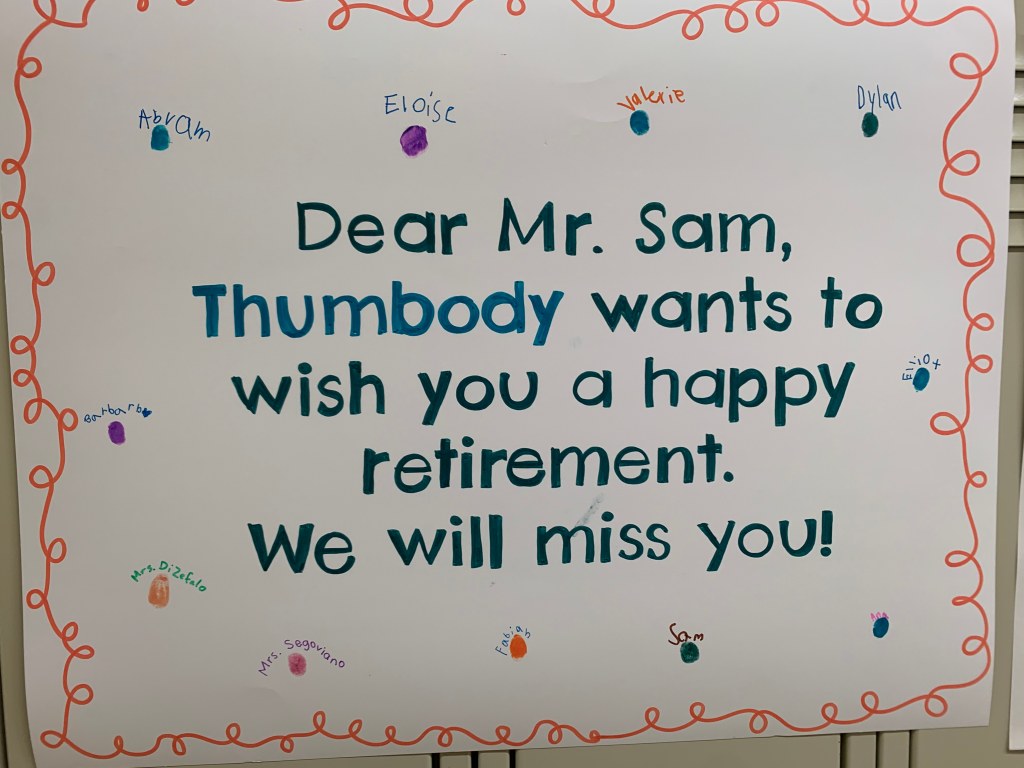 Abram
Eloise
Valerie
Dylan
Dear Mr. Sam,
Thumbody wants to
wish you a happy
retirement.
We will miss you!
Elliot
Barbarb
Mrs. DiZefalo
Mrs. Segoviano
Fabian
Sam